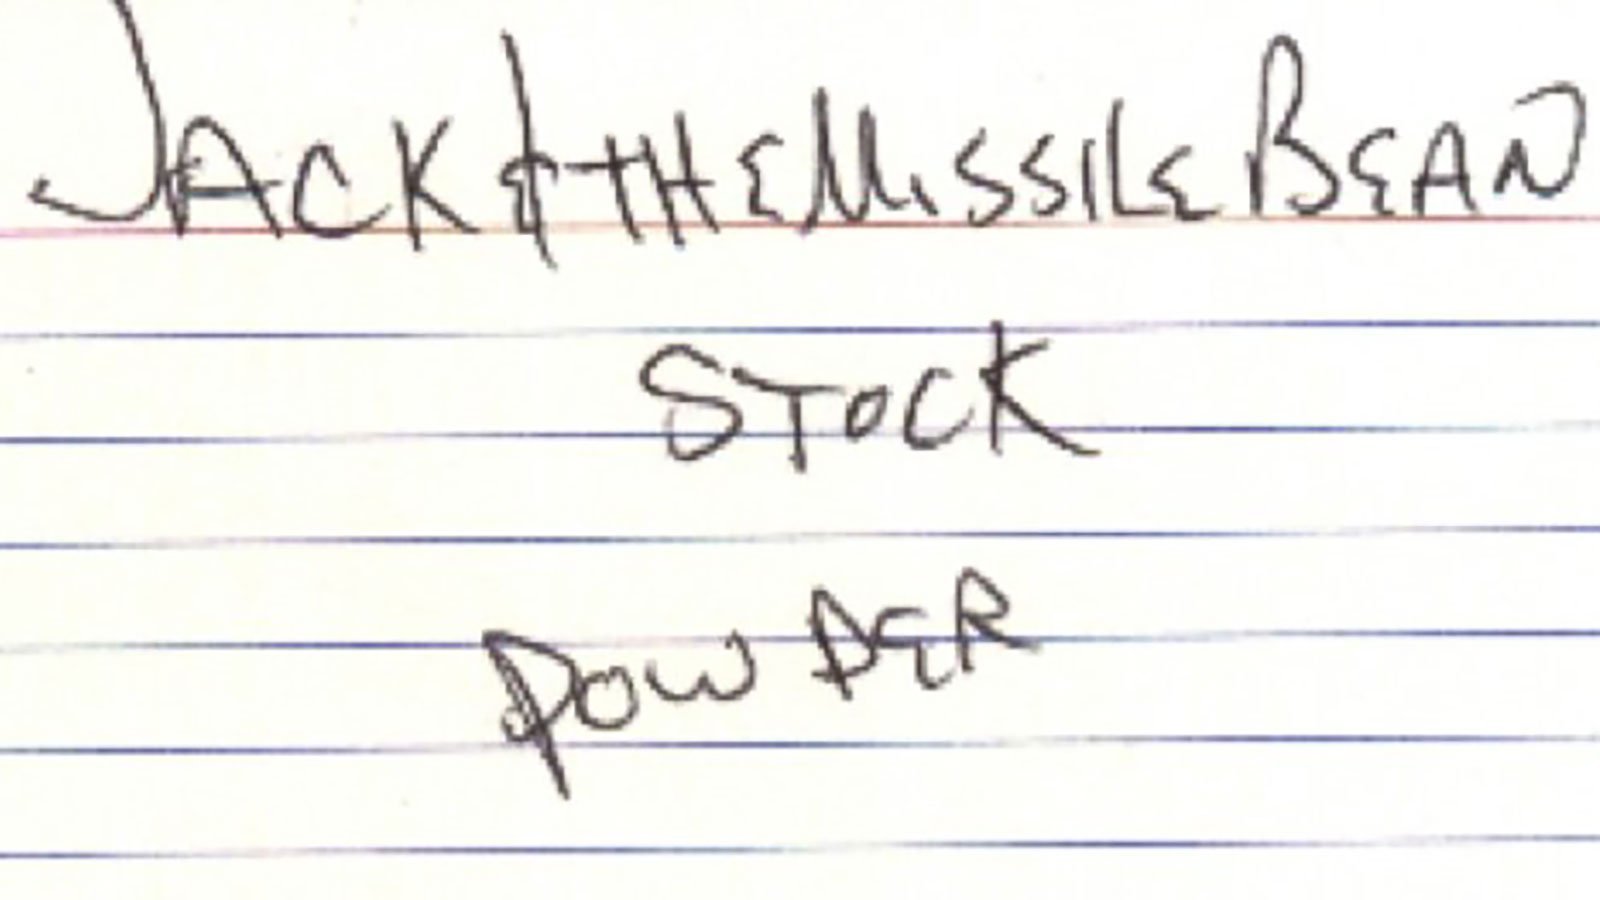 JACK & THE MISSILE BEAN
STOCK
POWDER